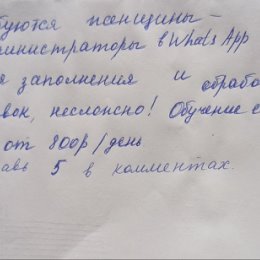 буются женщины -
министраторы в Whats App
я заполнения и обрабо
вок, несложно! Обучение с
от 800р/день
авь 5 в комментах.